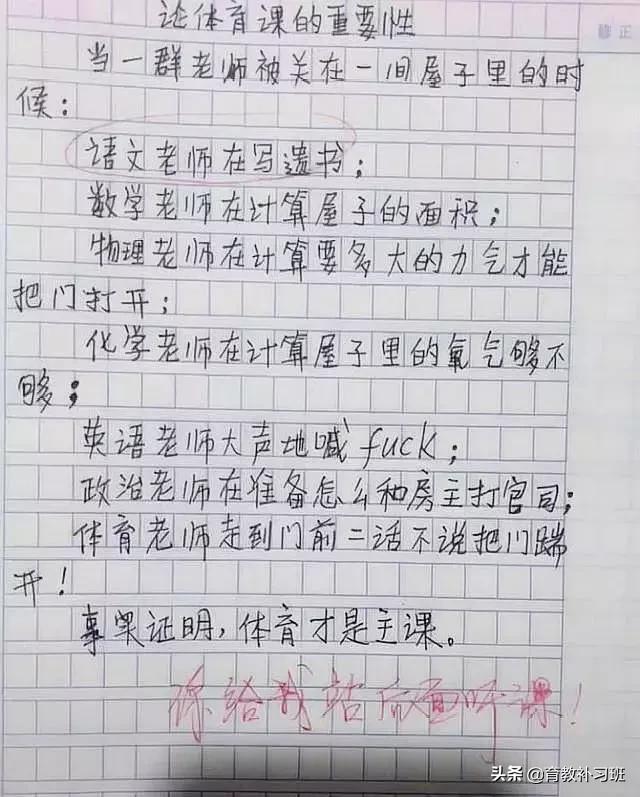 论体育课的重要性
修正
当一群老师被关在一间屋子里的时
候：
语文老师在写遗书；
数学老师在计算屋子的面积；
物理老师在计算要多大的力气才能
把门打开；
化学老师在计算屋子里的氧气够不
够；
英语老师大声地喊fuck；
政治老师在准备怎么和房主打官司；
体育老师走到门前二话不说把门踹
开！
事实证明，体育才是主课。
你给我站后面听课！
头条 @育教补习班